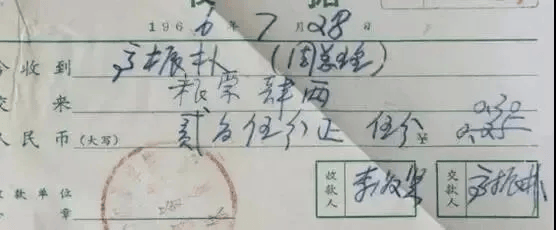 收 据
1966年7月28日
今收到 高振朴 (周总理)
交来 粮票肆两
人民币(大写) 贰角伍分正 伍分 ¥ 0.25
0.30
收款单位 收款人 交款人 高振朴
章